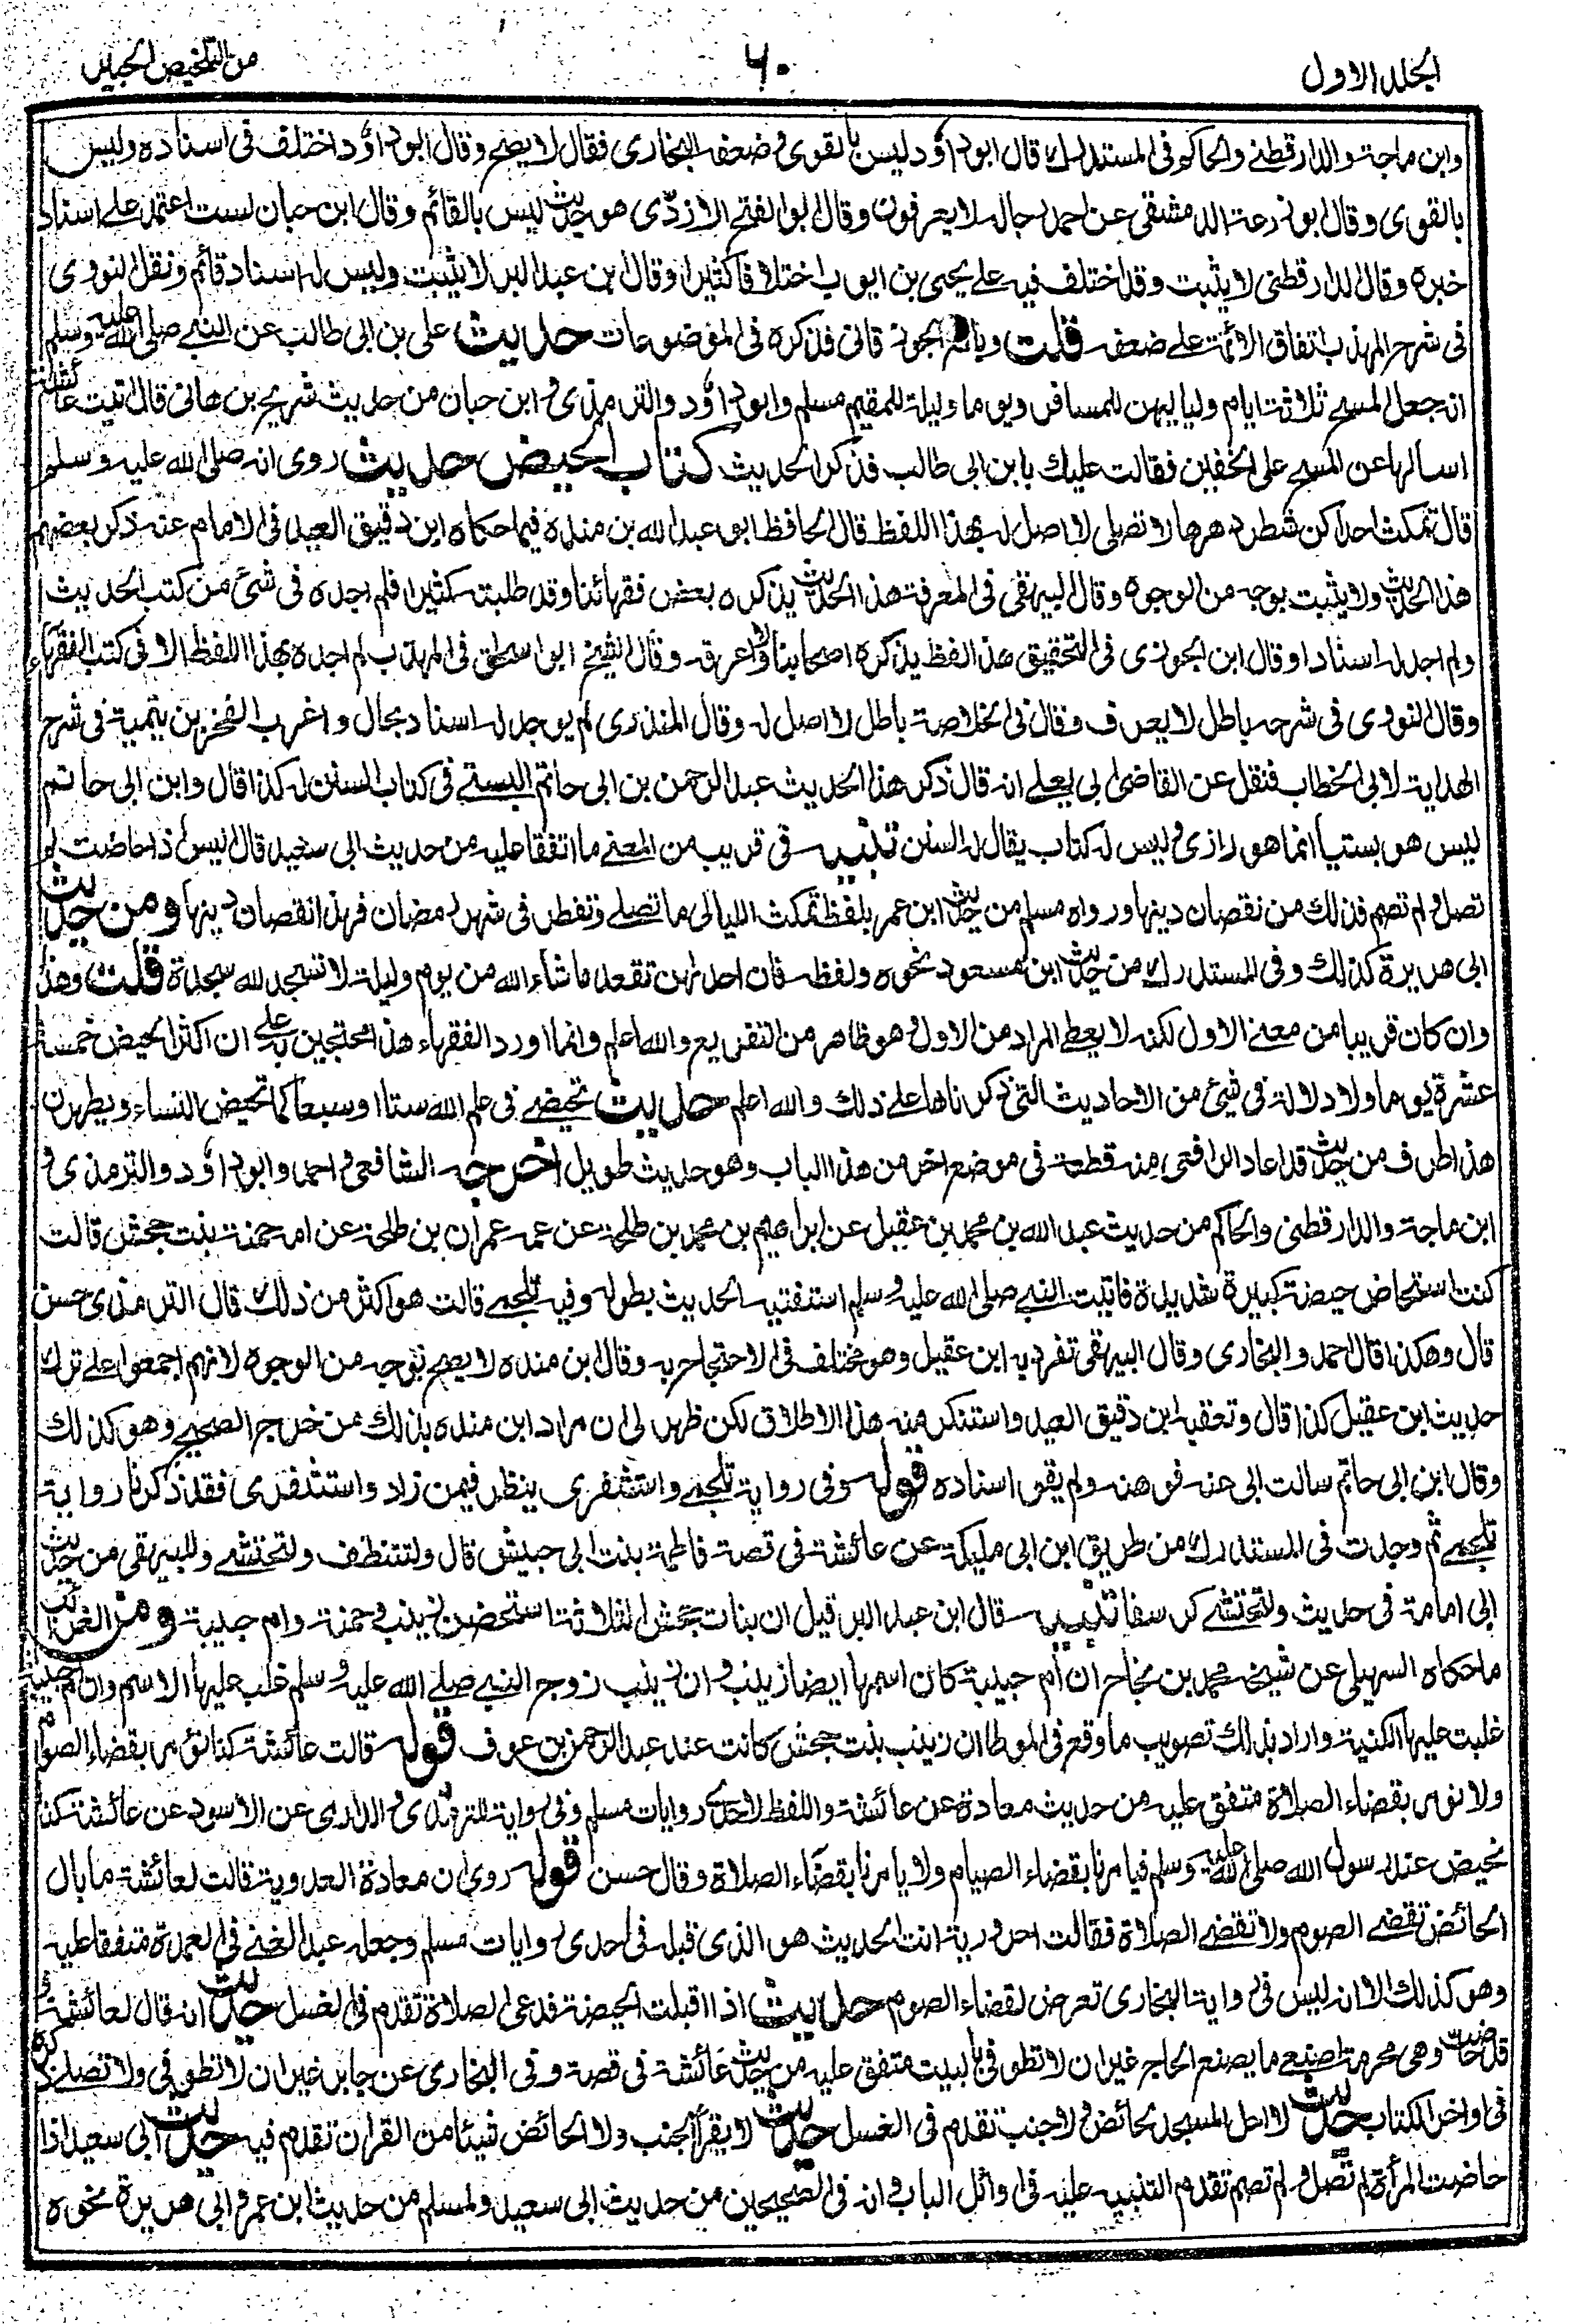 الجلد الاول
٦٠
من التلخيص الحبير
وابن ماجة والدارقطني والحاكم في المستدرك قال ابو داؤد ليس بالقوي وضعفه البخاري فقال لا يصح وقال ابو داؤد اختلف في اسناده وليس
بالقوي وقال ابو زرعة الدمشقي عن احمد رجاله لا يعرفون وقال ابو الفتح الازدي هو حديث ليس بالقائم وقال ابن حبان لست اعتمد على اسناد
خبره وقال الدارقطني لا يثبت وقد اختلف فيه على يحيى بن ايوب اختلافا كثيرا وقال ابن عبد البر لا يثبت وليس له اسناد قائم ونقل النووي
في شرح المهذب اتفاق الائمة على ضعفه قلت وبالغ الجوزقاني فذكره في الموضوعات حديث علي بن ابي طالب عن النبي صلى الله عليه وسلم
انه جعل المسح ثلاثة ايام ولياليهن للمسافر ويوما وليلة للمقيم مسلم وابو داؤد والترمذي وابن حبان من حديث شريح بن هانئ قال اتيت عائشة
اسالها عن المسح على الخفين فقالت عليك بابن ابي طالب فذكر الحديث كتاب الحيض حديث روي انه صلى الله عليه وسلم
قال تمكث احداكن شطر دهرها لا تصلي لا اصل له بهذا اللفظ قال الحافظ ابو عبد الله بن منده فيما حكاه ابن دقيق العيد في الامام عنه ذكر بعضهم
هذا الحديث ولا يثبت بوجه من الوجوه وقال البيهقي في المعرفة هذا الحديث يذكره بعض فقهائنا وقد طلبته كثيرا فلم اجده في شئ من كتب الحديث
ولم اجد له اسنادا وقال ابن الجوزي في التحقيق هذا لفظ يذكره اصحابنا ولا اعرفه وقال الشيخ ابو اسحاق في المهذب لم اجده بهذا اللفظ الا في كتب الفقهاء
وقال النووي في شرحه باطل لا يعرف وقال في الخلاصة باطل لا اصل له وقال المنذري لم يوجد له اسناد بحال واغرب الفخر بن تيمية في شرح
الهداية لابي الخطاب فنقل عن القاضي ابي يعلى انه قال ذكر هذا الحديث عبد الرحمن بن ابي حاتم البستي في كتاب السنن له كذا قال وابن ابي حاتم
ليس هو بستيا انما هو رازي وليس له كتاب يقال له السنن تنبيه في قريب من المعنى ما اتفقا عليه من حديث ابي سعيد قال اليس اذا حاضت لم
تصل ولم تصم فذلك من نقصان دينها ورواه مسلم من حديث ابن عمر بلفظ تمكث الليالي ما تصلي وتفطر في شهر رمضان فهذا نقصان دينها ومن حديث
ابي هريرة كذلك وفي المستدرك من حديث ابن مسعود نحوه ولفظه فان احداهن تقعد ما شاء الله من يوم وليلة لا تسجد لله سجدة قلت وهذا
وان كان قريبا من معنى الاول لكنه لا يعطي المراد من الاول وهو ظاهر من التفريع والله اعلم وانما اورد الفقهاء هذا محتجين به على ان اكثر الحيض خمسة
عشرة يوما ولا دلالة في شئ من الاحاديث التي ذكرناها على ذلك والله اعلم حديث تحيضي في علم الله ستا او سبعا كما تحيض النساء ويطهرن
هذا طرف من حديث قد اعاد الرافعي منه قطعة في موضع اخر من هذا الباب وهو حديث طويل اخرجه الشافعي واحمد وابو داؤد والترمذي و
ابن ماجة والدارقطني والحاكم من حديث عبد الله بن محمد بن عقيل عن ابراهيم بن محمد بن طلحة عن عمه عمران بن طلحة عن امه حمنة بنت جحش قالت
كنت استحاض حيضة كبيرة شديدة فاتيت النبي صلى الله عليه وسلم استفتيه الحديث بطوله وفيه تلجمي قالت هو اكثر من ذلك قال الترمذي حسن
قال وهكذا قال احمد والبخاري وقال البيهقي تفرد به ابن عقيل وهو مختلف في الاحتجاج به وقال ابن منده لا يصح بوجه من الوجوه لانهم اجمعوا على ترك
حديث ابن عقيل كذا قال وتعقبه ابن دقيق العيد واستنكر منه هذا الاطلاق لكن ظهر لي ان مراد ابن منده بذلك من خرج الصحيح وهو كذلك
وقال ابن ابي حاتم سالت ابي عنه فوهنه ولم يقو اسناده قوله وفي رواية تلجمي واستثفري ينظر فيمن زاد واستثفري فقد ذكرنا رواية
تلجمي ثم وجدت في المستدرك من طريق ابن ابي مليكة عن عائشة في قصة فاطمة بنت ابي حبيش قال ولتتنظف ولتحتشي وللبيهقي من حديث
ابي امامة في حديث ولتحتشي كرسفا تنبيه قال ابن عبد البر قيل ان بنات جحش الثلاثة استحضن زينب وحمنة وام حبيبة ومن الغرائب
ما حكاه السهيلي عن شيخه محمد بن نجاح ان ام حبيبة كان اسمها ايضا زينب وان زينب زوج النبي صلى الله عليه وسلم غلب عليها الاسم وان ام حبيبة
غلبت عليها الكنية واراد بذلك تصويب ما وقع في الموطا ان زينب بنت جحش كانت عند عبد الرحمن بن عوف قوله قالت عائشة كنا نؤمر بقضاء الصوم
ولا نؤمر بقضاء الصلاة متفق عليه من حديث معاذة عن عائشة واللفظ لاحدى روايات مسلم وفي رواية للترمذي والدارمي عن الاسود عن عائشة كنا
نحيض عند رسول الله صلى الله عليه وسلم فيامرنا بقضاء الصيام ولا يامرنا بقضاء الصلاة وقال حسن قوله روي ان معاذة العدوية قالت لعائشة ما بال
الحائض تقضي الصوم ولا تقضي الصلاة فقالت احرورية انت الحديث هو الذي قبله في احدى روايات مسلم وجعله عبد الغني في العمدة متفقا عليه
وهو كذلك الا انه ليس في رواية البخاري تعرض لقضاء الصوم حديث اذا اقبلت الحيضة فدعي الصلاة تقدم في الغسل حديث انه قال لعائشة و
قد حاضت وهي محرمة اصنعي ما يصنع الحاج غير ان لا تطوفي بالبيت متفق عليه من حديث عائشة في قصة وفي البخاري عن جابر غير ان لا تطوفي ولا تصلي ذكره
في اواخر الكتاب حديث لا احل المسجد لحائض ولا جنب تقدم في الغسل حديث لا يقرأ الجنب ولا الحائض شيئا من القران تقدم فيه حديث ابي سعيد اذا
حاضت المرأة لم تصل ولم تصم تقدم التنبيه عليه في اوائل الباب وانه في الصحيحين من حديث ابي سعيد ولمسلم من حديث ابن عمر وابي هريرة نحوه